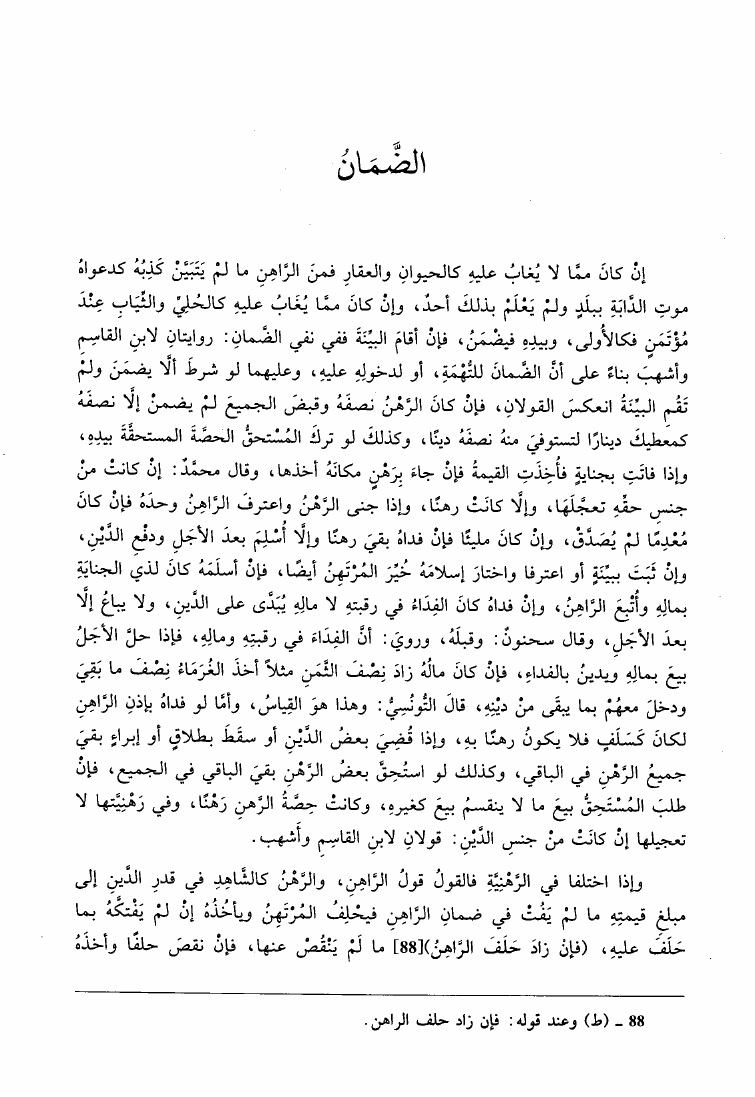 الضَّمَانُ
إنْ كانَ ممَّا لا يُغابُ عليهِ كالحيوانِ والعقارِ فمنَ الرَّاهِنِ ما لمْ يَتَبَيَّنْ كَذِبُهُ كدعواهُ
موتِ الدَّابَةِ ببلَدٍ ولمْ يَعْلَمْ بذلكَ أحدٌ، وإنْ كانَ ممَّا يُغَابُ عليهِ كالحُلِيِّ والثِّيَابِ عِنْدَ
مُؤْتَمَنٍ فكالأُولى، وبيدِهِ فيضْمَنُ، فإنْ أقامَ البيِّنَةَ ففي نفي الضَّمانِ: روايتانِ لابنِ القاسِمِ
وأشهبَ بناءً على أنَّ الضَّمانَ للتُّهْمَةِ، أو لدخولِهِ عليهِ، وعليهما لو شرطَ ألَّا يضمَنَ ولمْ
تَقُمِ البيِّنَةُ انعكسَ القولانِ، فإنْ كانَ الرَّهْنُ نصفَهُ وقبضَ الجميعَ لمْ يضمنْ إلَّا نصفَهُ
كمعطيكَ دينارًا لتستوفيَ منهُ نصفَهُ دينًا، وكذلكَ لو تركَ المُسْتحقُّ الحصَّةَ المستحقَّةَ بيدِهِ،
وإذا فاتَتِ بجنايةٍ فأُخِذَتِ القيمةُ فإنْ جاءَ بِرَهْنٍ مكانَهُ أخذها، وقال محمَّدٌ: إنْ كانتْ منْ
جنسِ حقِّهِ تعجَّلَهَا، وإلَّا كانَتْ رهنًا، وإذا جنى الرَّهْنُ واعترفَ الرَّاهِنُ وحدَهُ فإنْ كانَ
مُعْدِمًا لمْ يُصَدَّقْ، وإنْ كانَ مليئًا فإنْ فداهُ بقيَ رهنًا وإلَّا أُسْلِمَ بعدَ الأجَلِ ودفْعِ الدَّيْنِ،
وإنْ ثَبَتَ ببيِّنَةٍ أو اعترفا واختارَ إسلامَهُ خُيِّرَ المُرْتَهِنُ أيضًا، فإنْ أسلَمَهُ كانَ لذي الجنايَةِ
بمالِهِ وأُتْبِعَ الرَّاهِنُ، وإنْ فداهُ كانَ الفِدَاءُ في رقبتِهِ لا مالِهِ يُبَدَّى على الدَّينِ، ولا يباعُ إلَّا
بعدَ الأجَلِ، وقال سحنونٌ: وقبلَهُ، ورويَ: أنَّ الفِدَاءَ في رقبتِهِ ومالِهِ، فإذا حلَّ الأجَلُ
بيعَ بمالِهِ ويدينُ بالفداءِ، فإنْ كانَ مالُهُ زادَ نِصْفَ الثَّمَنِ مثلاً أخذَ الغُرَمَاءُ نِصْفَ ما بَقِيَ
ودخلَ معهُمْ بما يبقَى منْ ديْنِهِ، قالَ التُّونسِيُّ: وهذا هوَ القِياسُ، وأمَّا لو فداهُ بإذنِ الرَّاهِنِ
لكانَ كَسَلَفٍ فلا يكونُ رهنًا بهِ، وإذا قُضِيَ بعضُ الدَّيْنِ أو سقَطَ بطلاقٍ أو إبراءٍ بقيَ
جميعُ الرَّهْنِ في الباقي، وكذلكَ لو استُحِقَّ بعضُ الرَّهْنِ بقيَ الباقي في الجميعِ، فإنْ
طلبَ المُسْتَحِقُّ بيعَ ما لا ينقسمُ بيعَ كغيرِهِ، وكانتْ حِصَّةُ الرَّهنِ رَهْنًا، وفي رَهْنِيَّتها لا
تعجيلها إنْ كانَتْ منْ جنسِ الدَّيْنِ: قولانِ لابنِ القاسِمِ وأشهبَ.
وإذا اختلفا في الرَّهْنِيَّةِ فالقولُ قولُ الرَّاهِنِ، والرَّهْنُ كالشَّاهِدِ في قدرِ الدَّينِ إلى
مبلغِ قيمتِهِ ما لمْ يَفُتْ في ضمانِ الرَّاهِنِ فيحْلِفُ المُرْتَهِنُ ويأخُذُهُ إنْ لمْ يَفْتَكَّهُ بما
حَلَفَ عليهِ، (فإنْ زادَ حَلَفَ الرَّاهِنُ)[88] ما لَمْ يَنْقُصْ عنها، فإنْ نقصَ حلفًا وأخذَهُ
88 ـ (ط) وعند قوله: فإن زاد حلف الراهن.